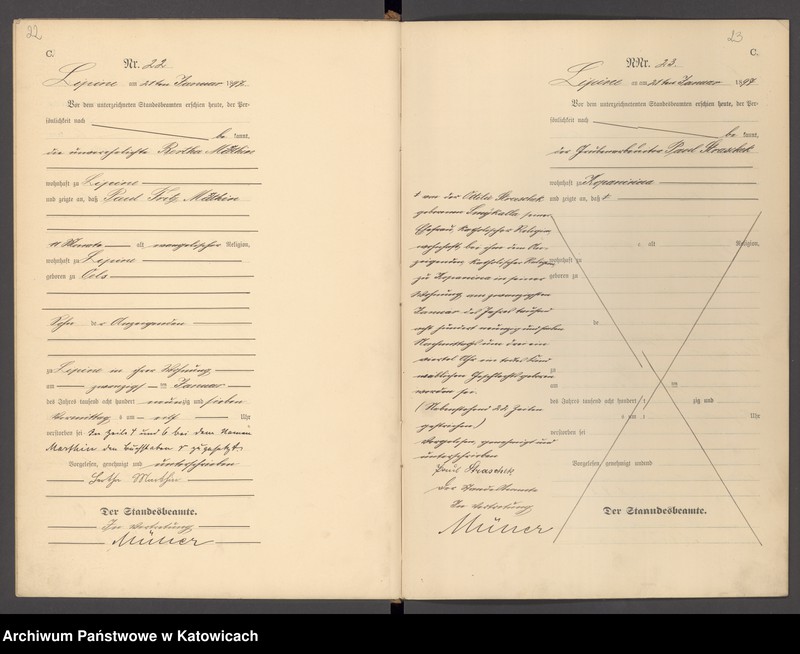 22
C.
Nr. 22
Lipine am 21ten Januar 1897
Vor dem unterzeichneten Standesbeamten erschien heute, der Per-
sönlichkeit nach
be kannt,
die unverehelichte Bertha
wohnhaft zu Lipine
und zeigte an, daß Paul Fritz
11 Monate alt, evangelischer Religion,
wohnhaft zu Lipine
geboren zu Oels
Sohn der Anzeigenden
zu Lipine in ihrer Wohnung
am zwanzigsten Januar
des Jahres tausend acht hundert neunzig und sieben
Vormittags um elf Uhr
verstorben sei In Zeile 4 und 6 bei dem Namen
Marthin den Buchstaben r zugesetzt
Vorgelesen, genehmigt und unterschrieben
Bertha Marthin
Der Standesbeamte.
In Vertretung
Müller
23
C.
Nr. 23.
Lipine am 21ten Januar 1897
Vor dem unterzeichneten Standesbeamten erschien heute, der Per-
sönlichkeit nach
be kannt,
der Grubenarbeiter Paul
wohnhaft zu Kopanina
und zeigte an, daß
alt, Religion,
wohnhaft zu
geboren zu
zu
am
des Jahres tausend acht hundert zig und
um Uhr
verstorben sei
Vorgelesen, genehmigt und
Der Standesbeamte.
von der Ottilie
geborenen seiner
Ehefrau, katholischer Religion,
wohnhaft bei ihm dem An-
zeigenden, katholischer Religion
zu Kopanina in seiner
Wohnung am zwanzigsten
Januar des Jahres tausend
acht hundert neunzig und sieben
Nachmittags um drei ein
viertel Uhr ein todtes Kind
weiblichen Geschlechts geboren
worden sei.
(Nebenstehend 22 Zeilen
gestrichen)
Vorgelesen, genehmigt und
unterschrieben
Der Standesbeamte
In Vertretung
Müller
Archiwum Państwowe w Katowicach